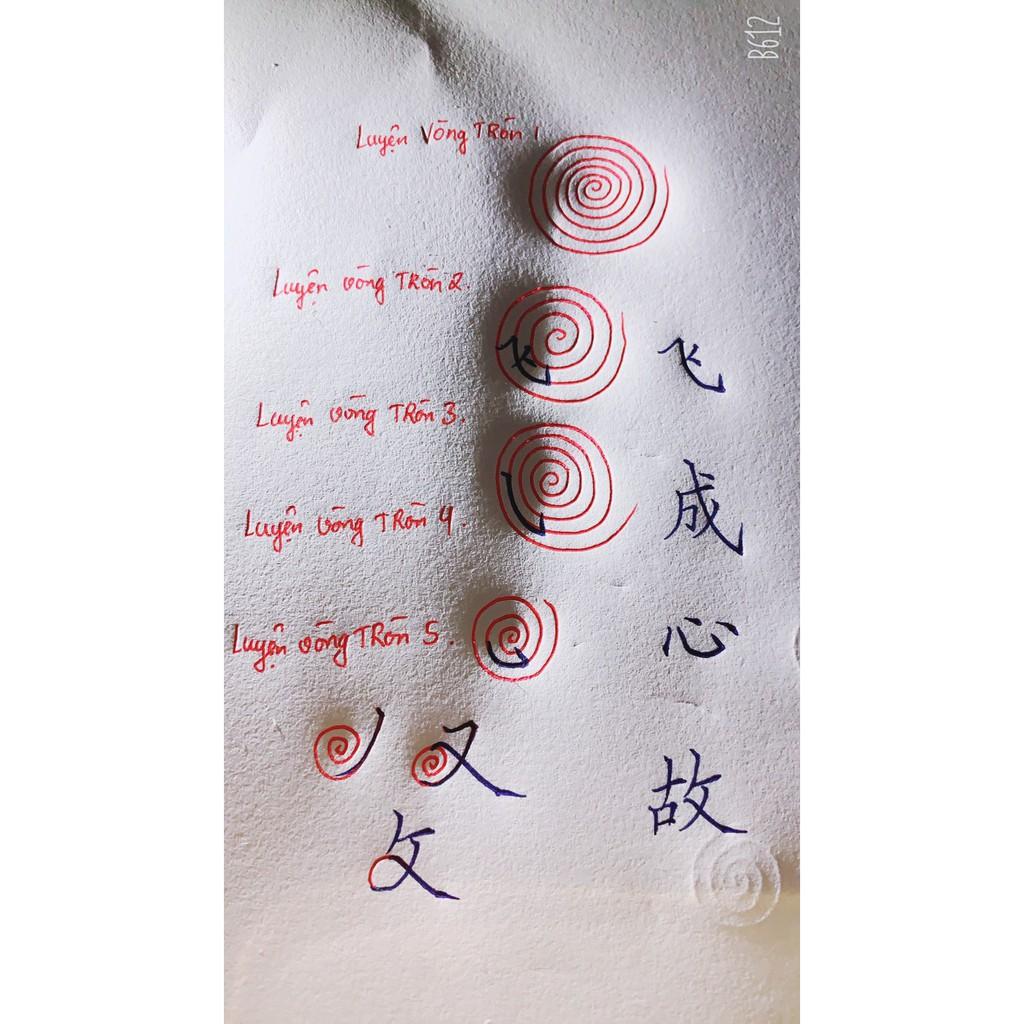 B612
Luyện Vòng TRòn 1
Luyện vòng TRòn 2.
飞 飞
Luyện vòng TRòn 3.
成
Luyện vòng TRòn 4.
Luyện vòng TRòn 5.
心
又
故
攵